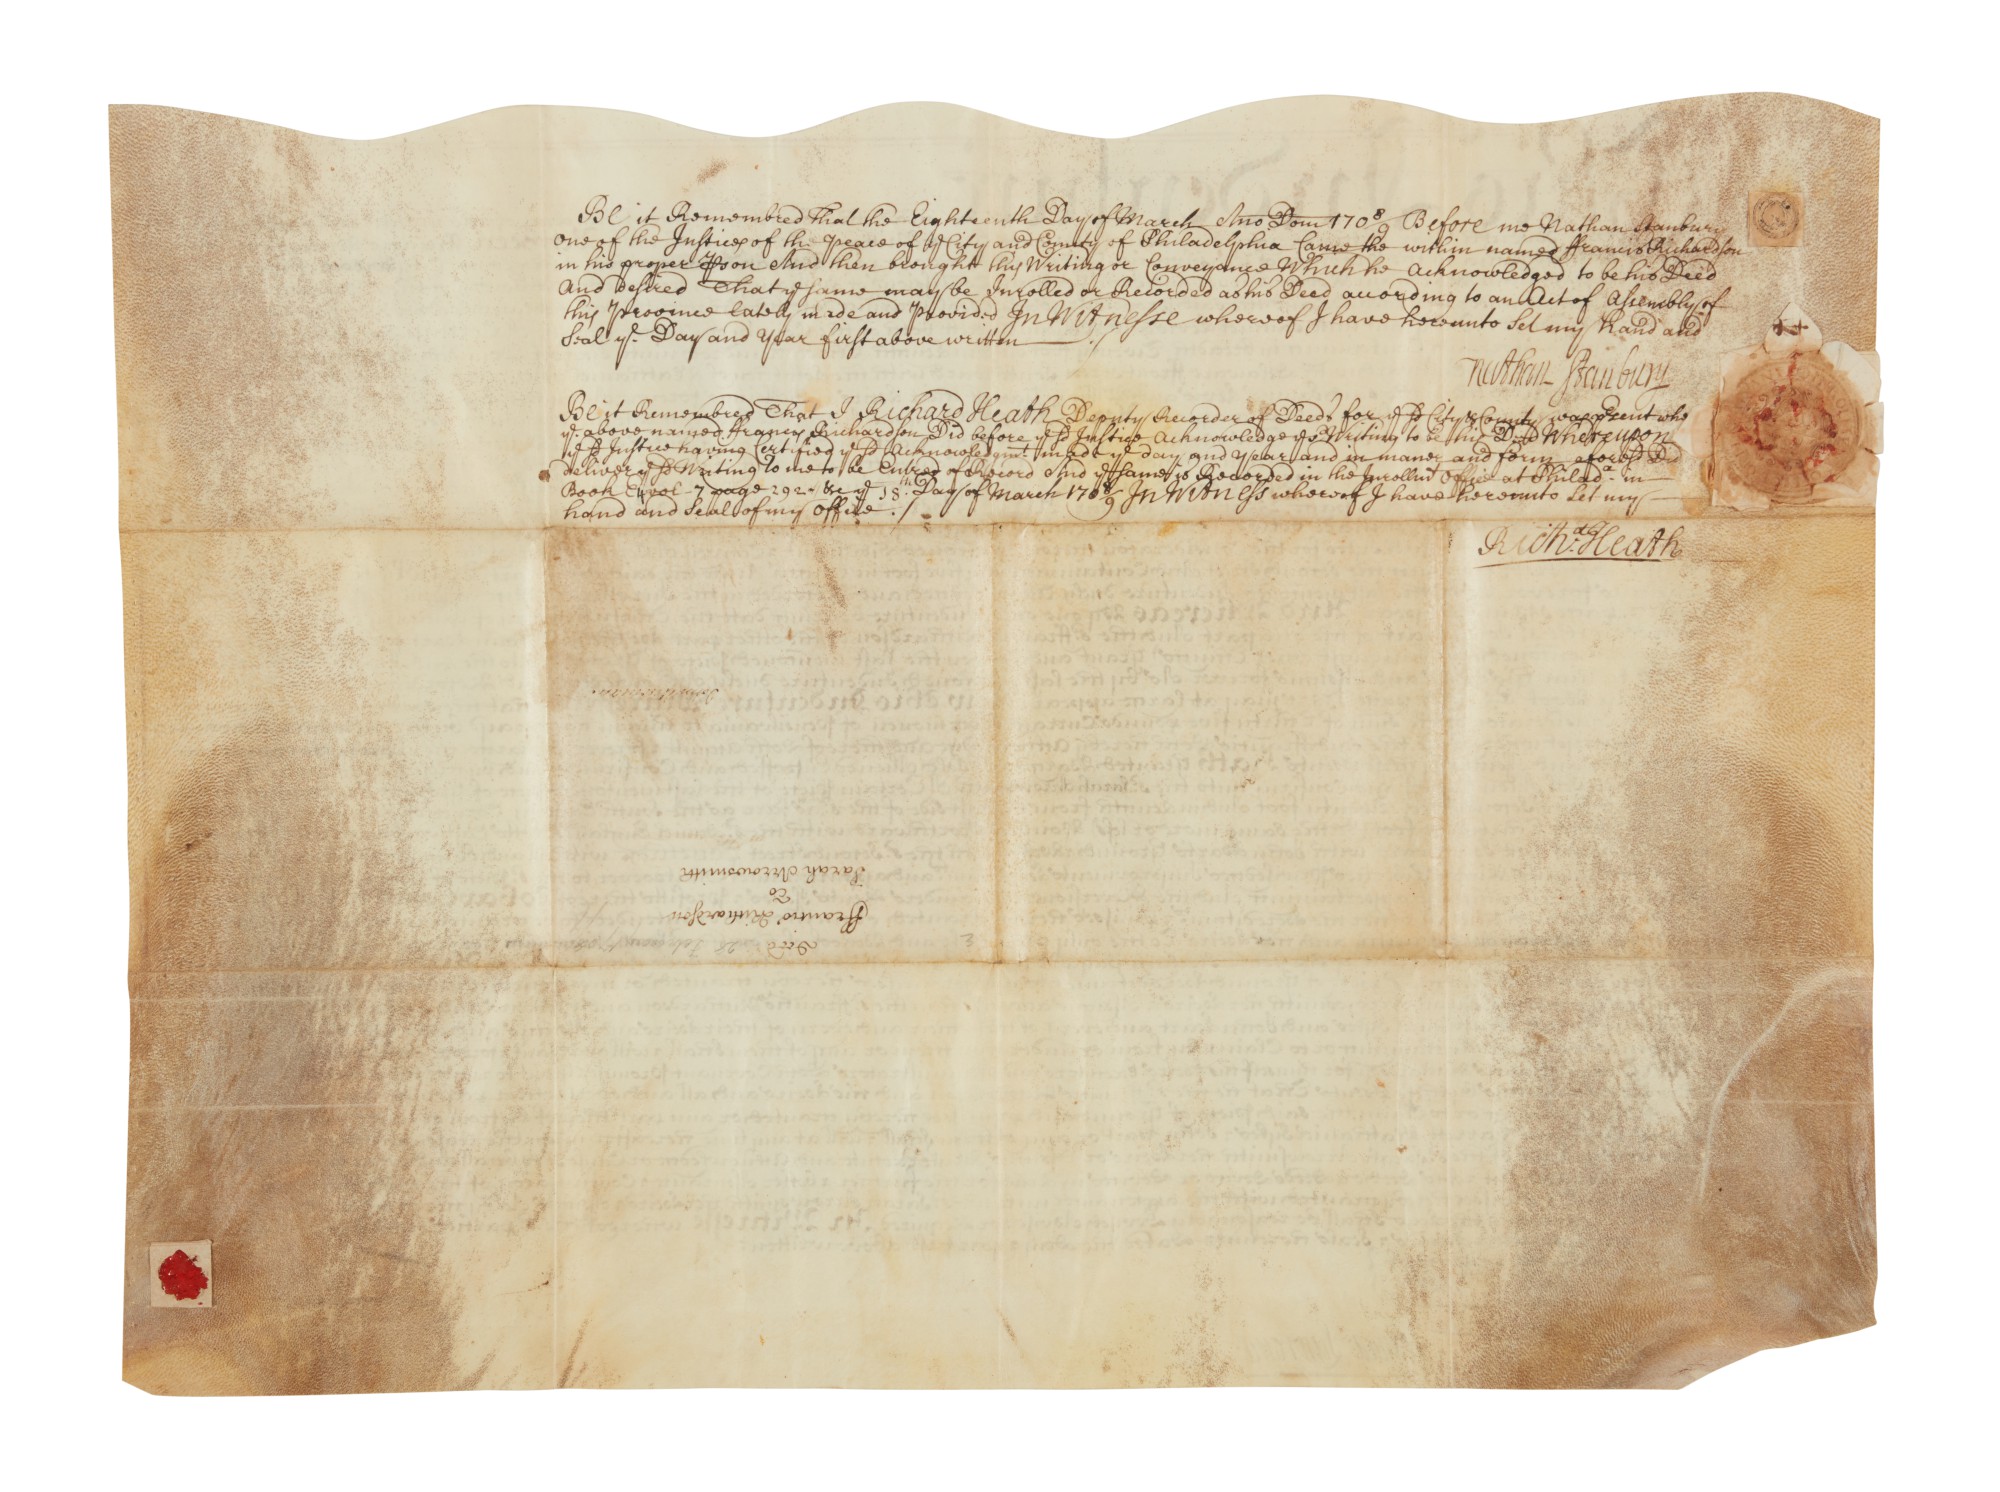 Be it Remembred That the Eighteenth Day of March Ano Dom 1708/9 Before me Nathan Stanbury
one of the Justices of the Peace of ye City and County of Philadelphia Came the within named ffrancis Richardson
in his proper pson And then brought this Writing or Conveyance Which he acknowledged to be his Deed
And desired That ye same may be Inrolled or Recorded as his Deed according to an Act of Assembly of
this Province lately made and Provided In Witnesse whereof I have hereunto Set my Hand and
Seal ye Day and Year first above written
Nathan Stanbury
Be it Remembred That I Richard Heath Deputy Recorder of Deeds for ye sd City & County was psent who
ye above named ffrancis Richardson Did before ye sd Justice Acknowledge ys Writing to be his Deed Whereupon
ye sd Justice having Certified ye sd Acknowledgmt made ye day and Year and in maner and form aforesd Did
deliver ye sd Writing to me to be Entred of Record And ye same is Recorded in the Inrollmt Office at Philada in
Book E vol 7 page 292 &c ye 18th Day of March 1708/9 In Witness whereof I have hereunto Set my
hand and Seal of my office
Richd Heath
Deed 28 February
ffrancis Richardson
To
Sarah Arrowsmith